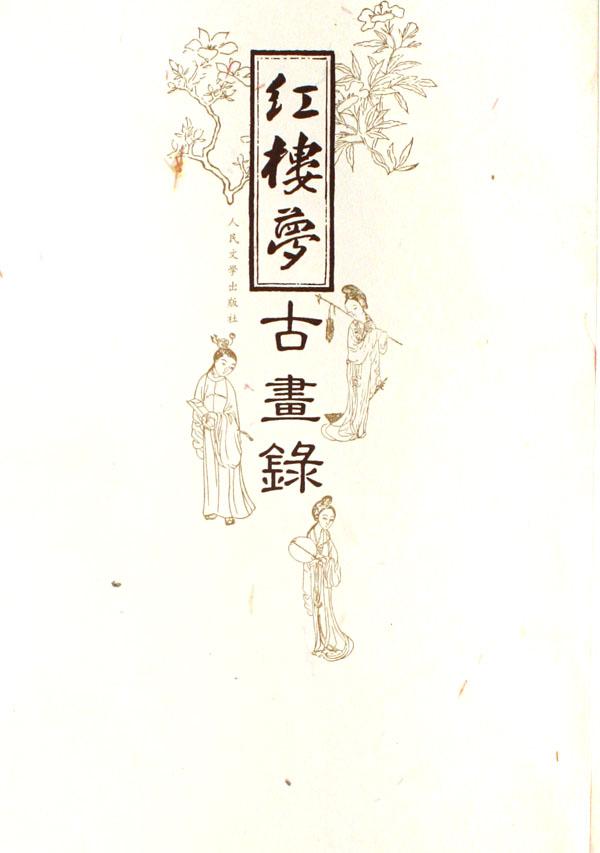 红楼夢
古畫錄
人民文學出版社